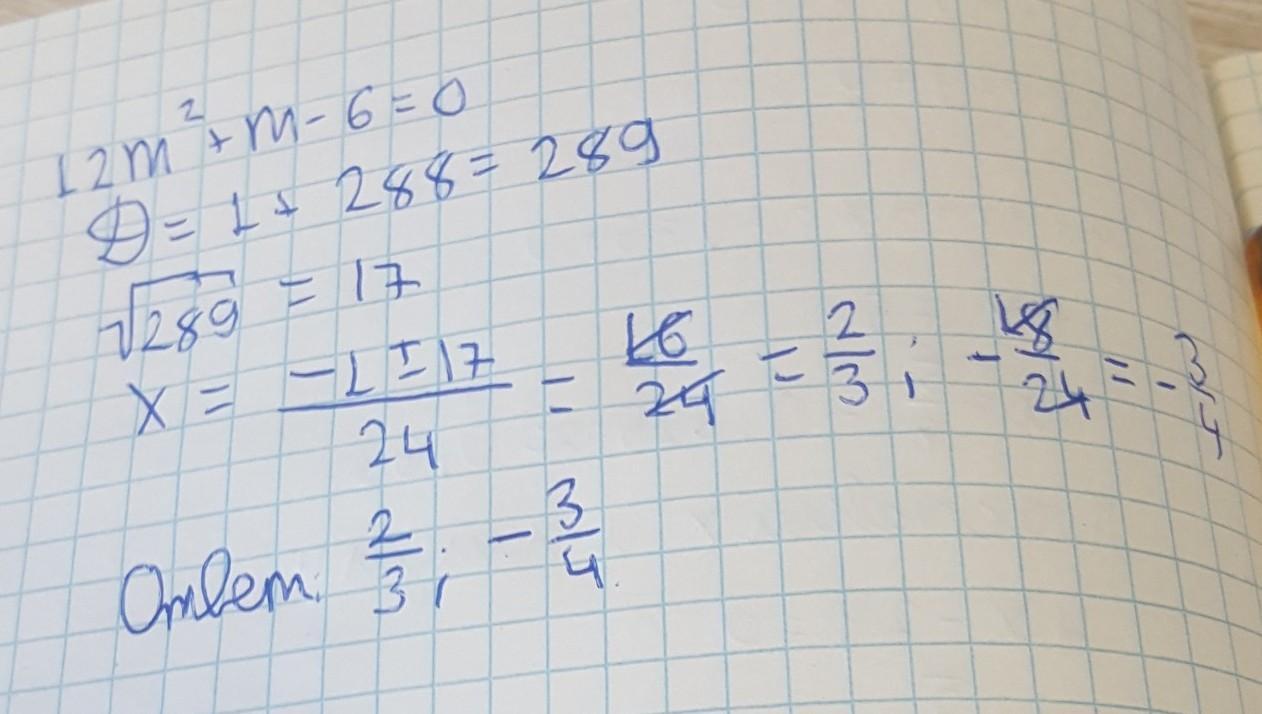 12m² + m - 6 = 0
D = 1 + 288 = 289
√289 = 17
x = (-1 ± 17)/24 = 16/24 = 2/3 ; - 18/24 = - 3/4
Ответ: 2/3 ; - 3/4.